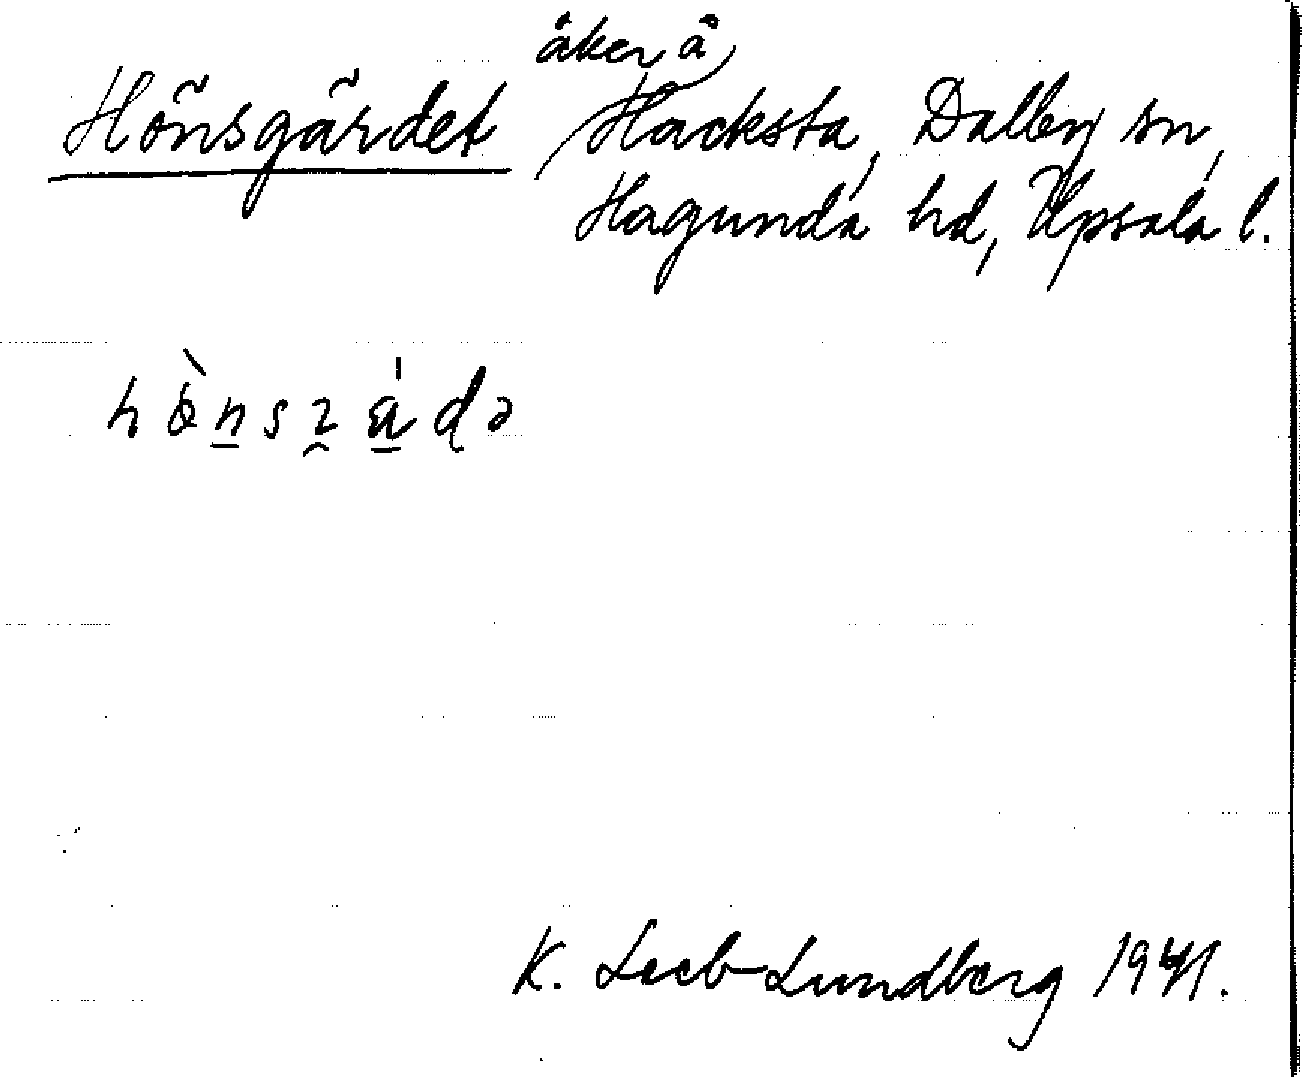 Hönsgärdet åker å Hacksta, Dalby sn,
Hagunda hd, Upsala l.
K. Leeb-Lundberg 1941.